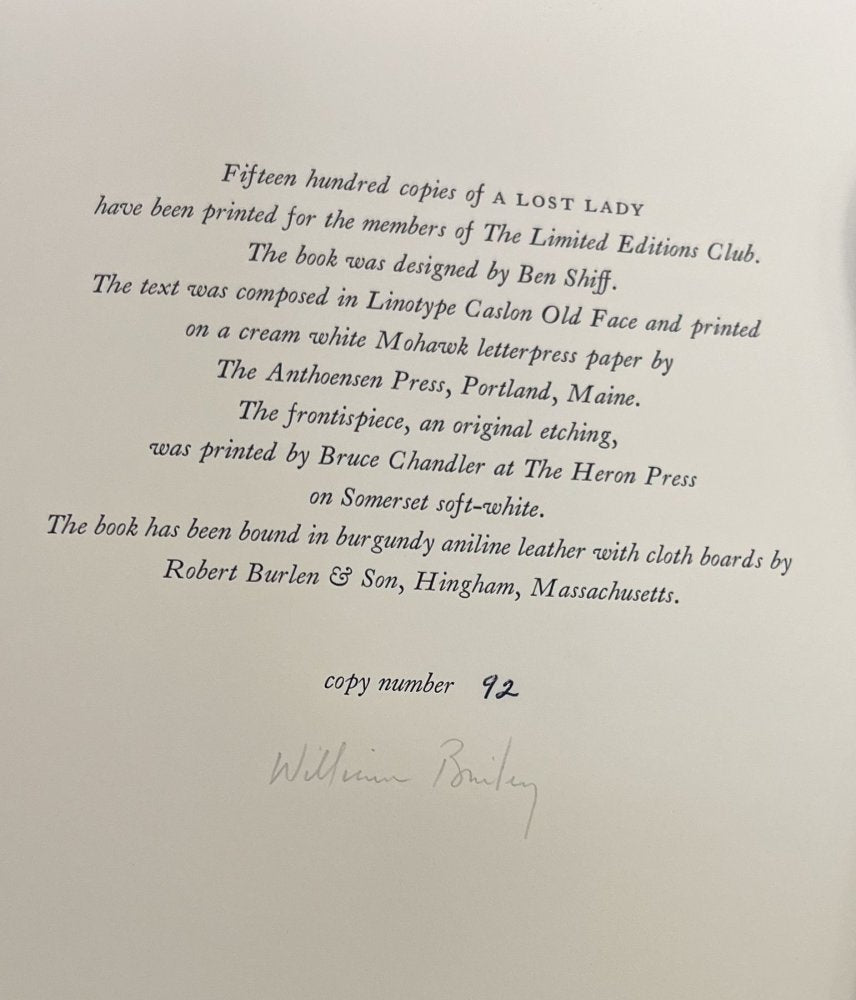 Fifteen hundred copies of A LOST LADY
have been printed for the members of The Limited Editions Club.
The book was designed by Ben Shiff.
The text was composed in Linotype Caslon Old Face and printed
on a cream white Mohawk letterpress paper by
The Anthoensen Press, Portland, Maine.
The frontispiece, an original etching,
was printed by Bruce Chandler at The Heron Press
on Somerset soft-white.
The book has been bound in burgundy aniline leather with cloth boards by
Robert Burlen & Son, Hingham, Massachusetts.
copy number 92
William Bailey